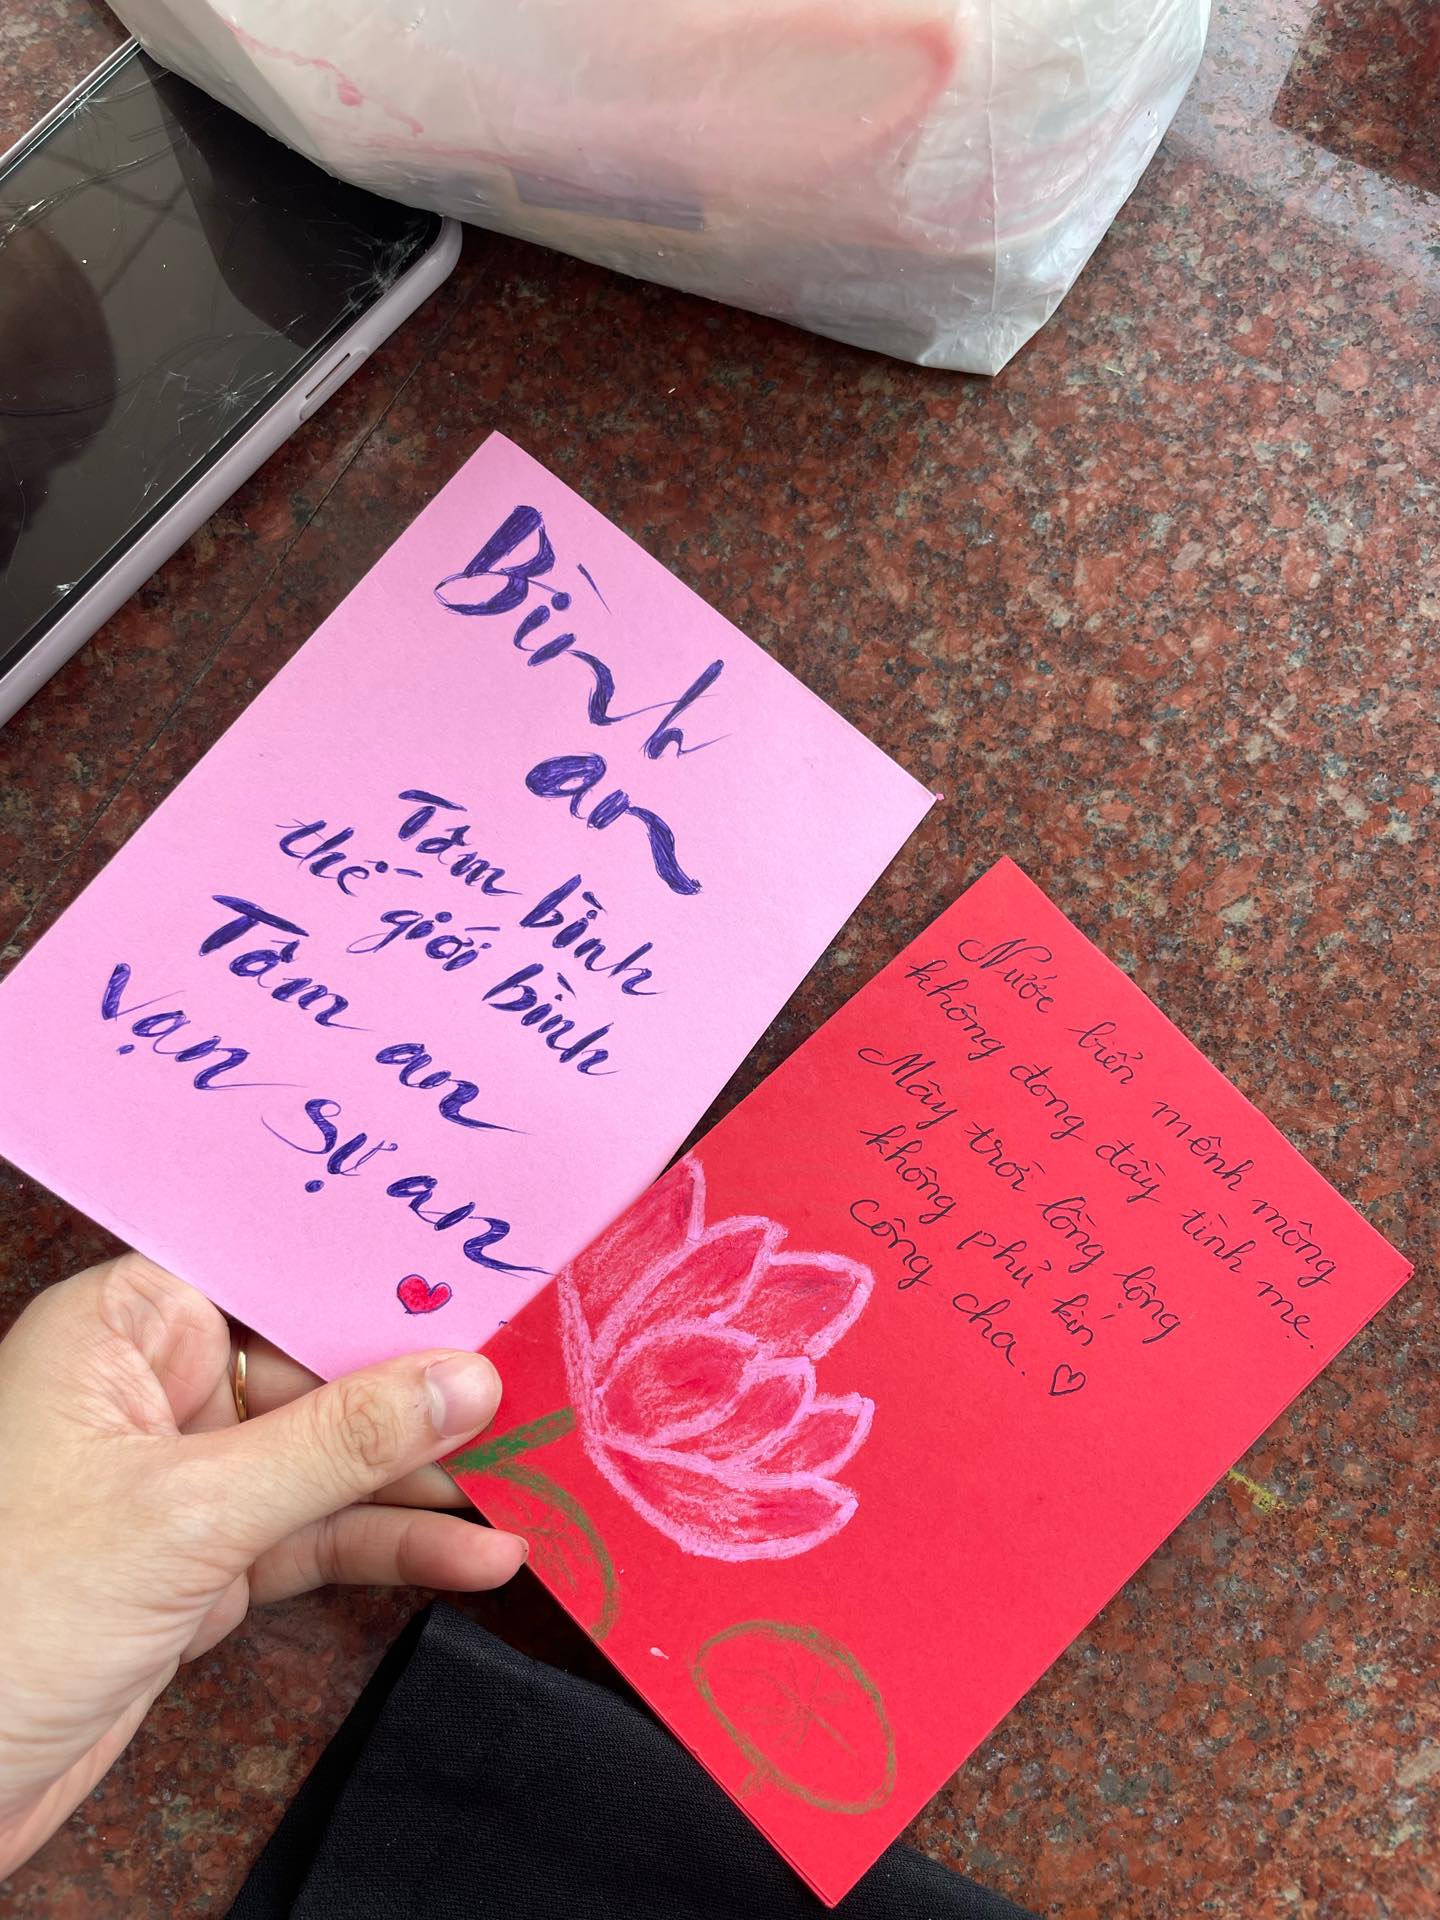 Bình
an
Tâm bình
thế giới bình
Tâm an
Vạn sự an
Nước biển mênh mông
không đong đầy tình mẹ.
Mây trời lồng lộng
không phủ kín
công cha.